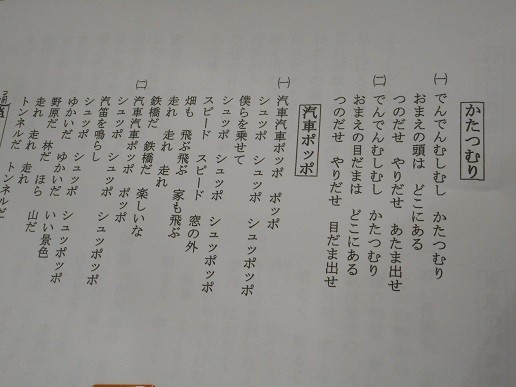 かたつむり
㈠ でんでんむしむし かたつむり
おまえの頭は どこにある
つのだせ やりだせ あたま出せ
㈡ でんでんむしむし かたつむり
おまえの目だまは どこにある
つのだせ やりだせ 目だま出せ
汽車ポッポ
㈠ 汽車汽車ポッポ ポッポ
シュッポ シュッポ シュッポッポ
僕らを乗せて
シュッポ シュッポ シュッポッポ
スピード スピード 窓の外
畑も 飛ぶ飛ぶ 家も飛ぶ
走れ 走れ 走れ
鉄橋だ 鉄橋だ 楽しいな
㈡ 汽車汽車ポッポ ポッポ
シュッポ シュッポ シュッポッポ
汽笛を鳴らし
シュッポ シュッポ シュッポッポ
ゆかいだ ゆかいだ いい景色
野原だ 林だ ほら 山だ
走れ 走れ 走れ
トンネルだ トンネルだ